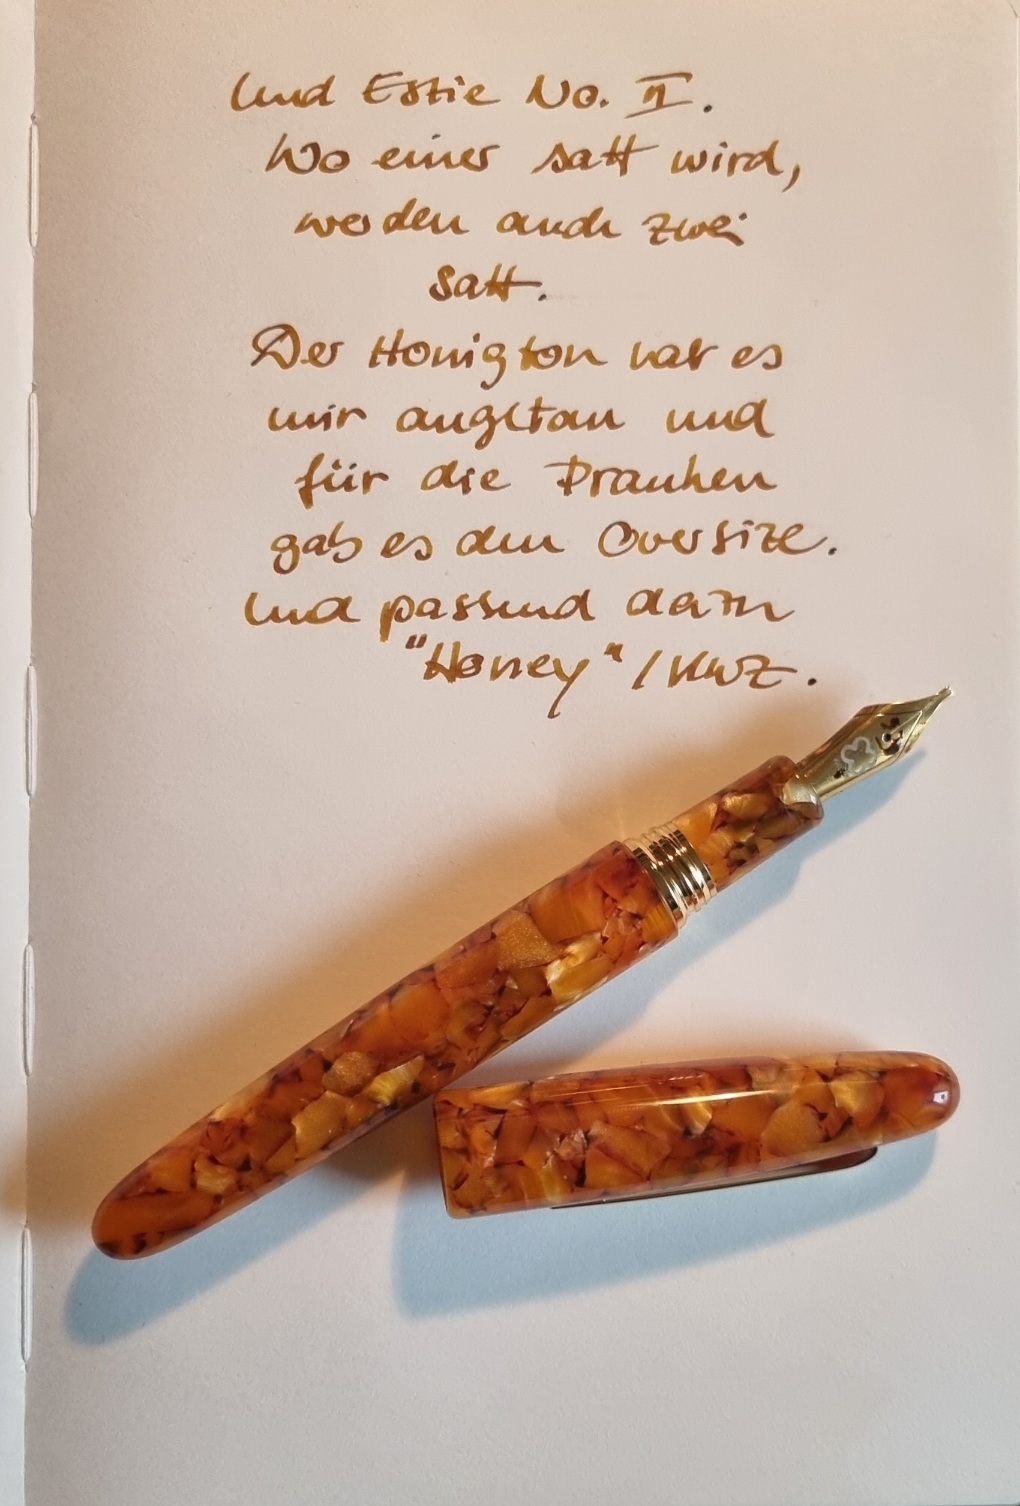 Und Estie No. II.
Wo einer satt wird,
werden auch zwei
satt.
Der Honigton hat es
mir angetan und
für die Pranken
gab es den Oversize.
Und passend dazu
"Honey" / KWZ.